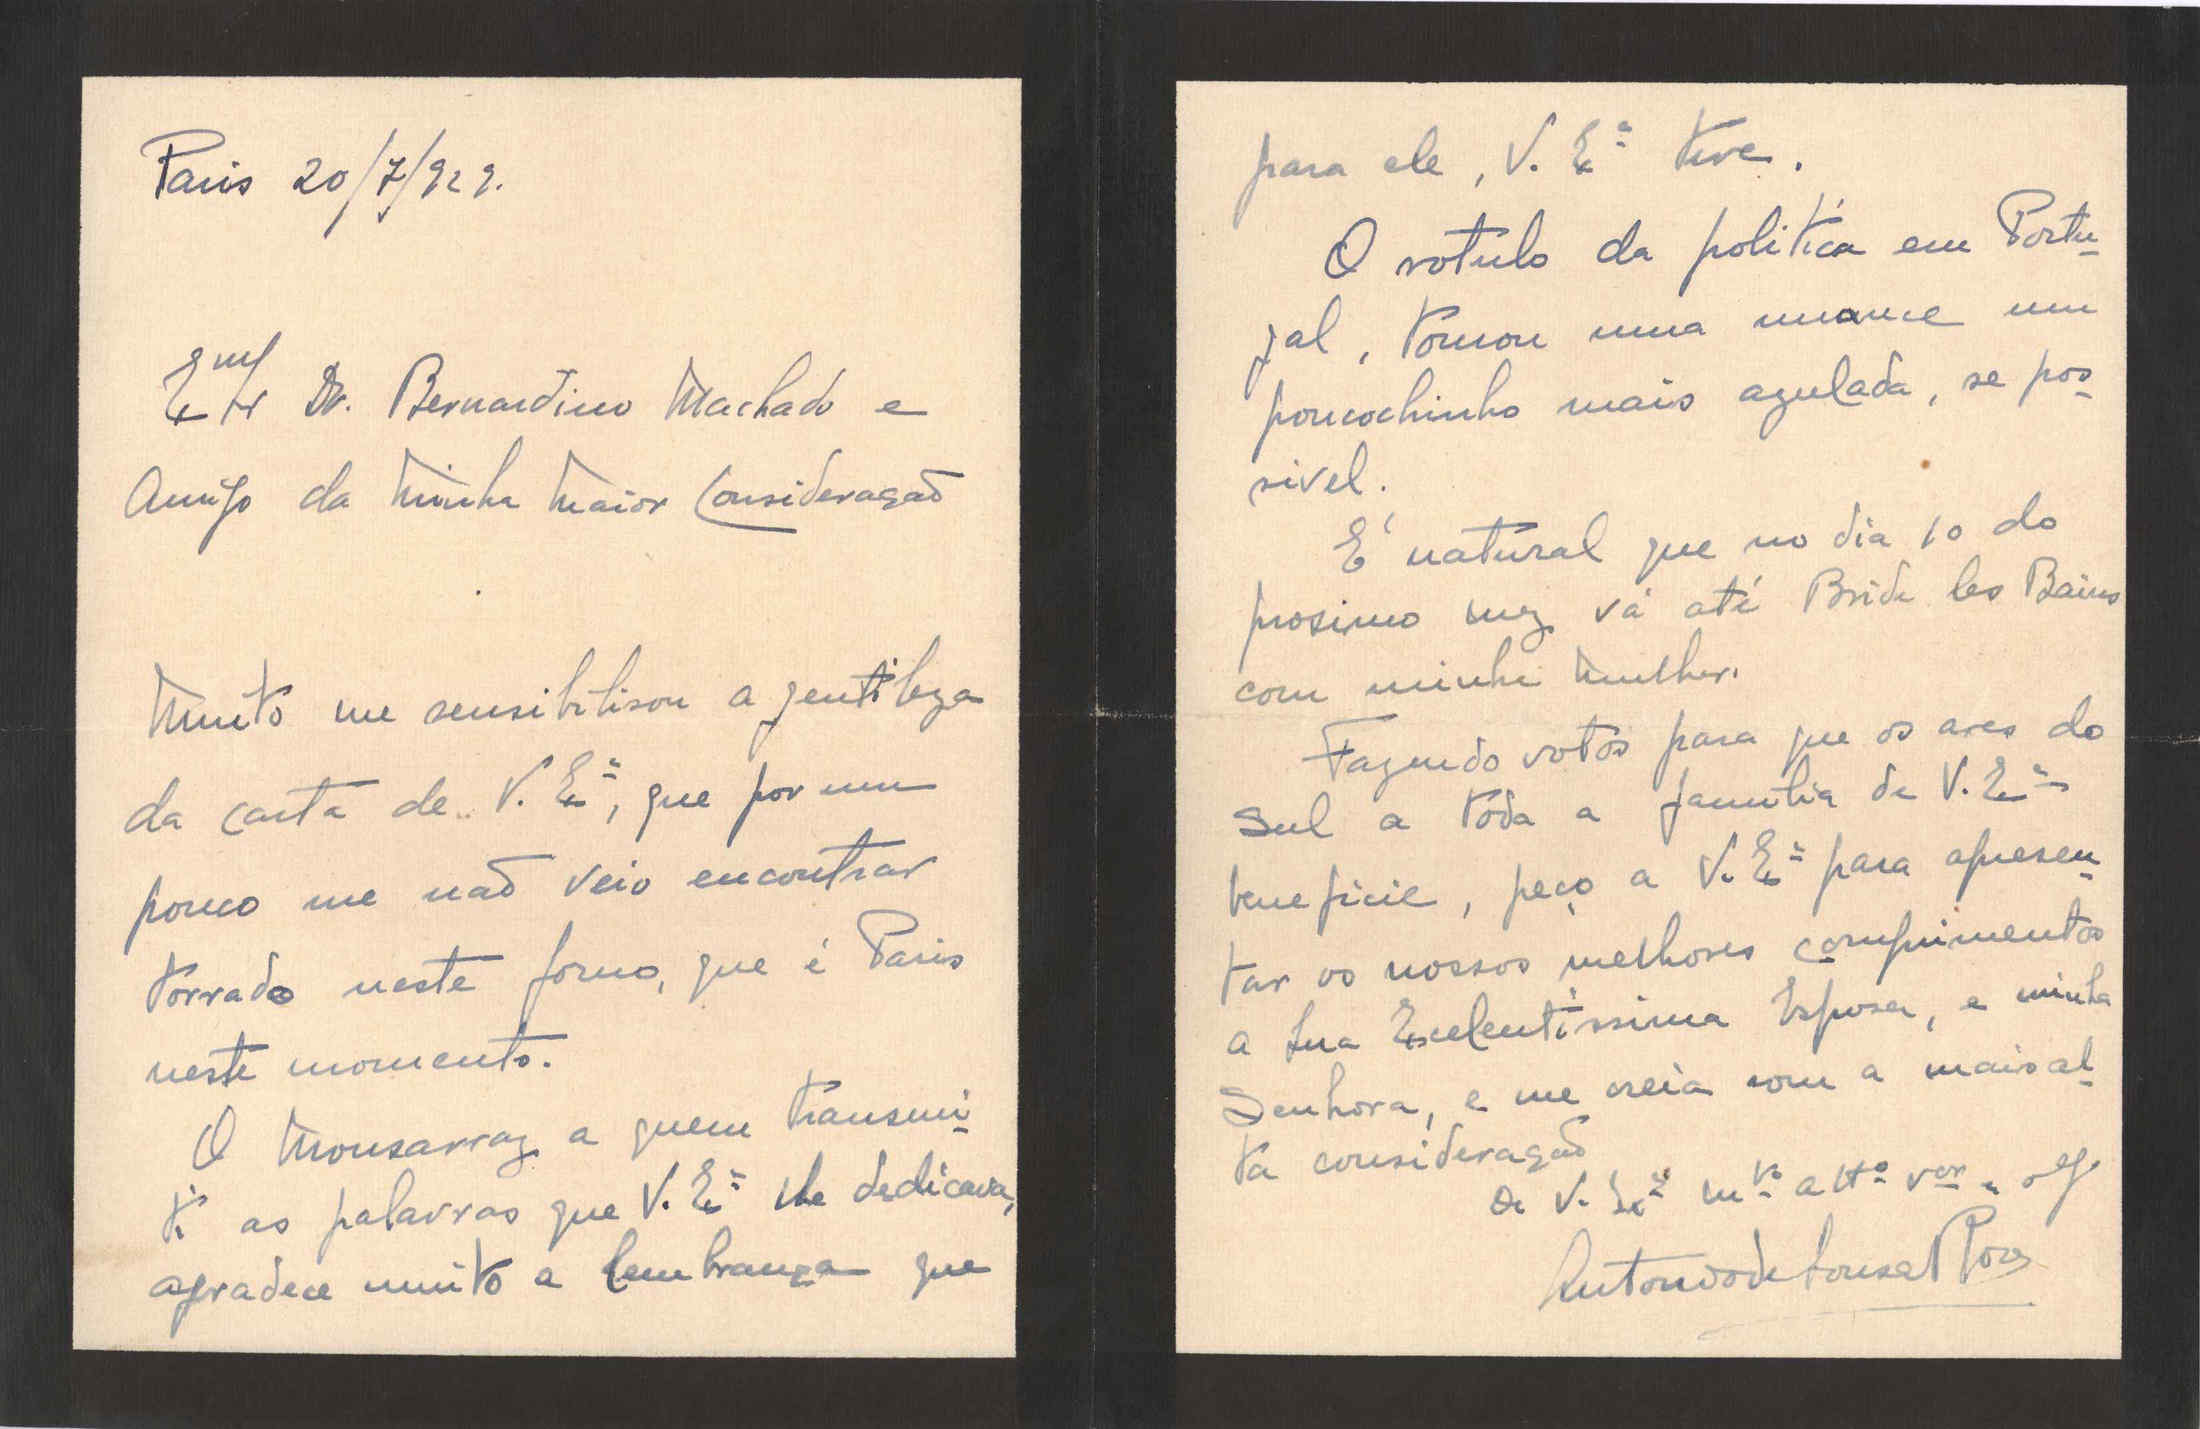 Paris 20/7/929.
Exmo Sr Dr. Bernardino Machado e
Amigo da Minha Maior Consideração
Muito me sensibilisou a gentileza
da carta de V. Exª, que por um
pouco me não veio encontrar
torrado neste forno, que é Paris
neste momento.
O Monsarraz a quem transmi-
ti as palavras que V. Exª lhe dedicava,
agradece muito a lembrança que
para ele, V. Exª teve.
O rotulo da politica em Portu-
gal, tomou uma nuance um
poucochinho mais azulada, se pos-
sivel.
É natural que no dia 10 do
prosimo mez vá até Bride les Bains
com minha Mulher.
Fazendo votos para que os ares do
Sul a toda a familia de V. Exª
beneficie, peço a V. Exª para apresen-
tar os nossos melhores comprimentos
a Sua Excelentissima Esposa, e minha
Senhora, e me creia com a mais al-
ta consideração
De V. Exª mto atto vor e
Antonio de Sousa